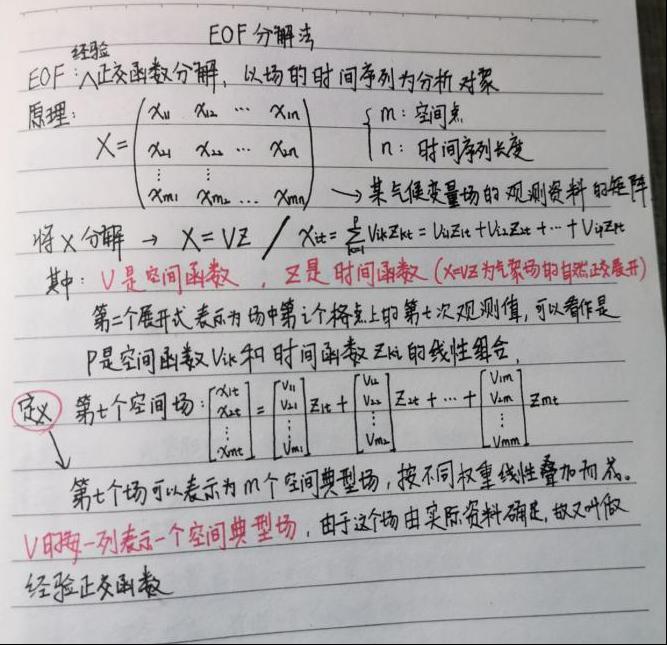 EOF分解法
EOF:经验正交函数分解,以场的时间序列为分析对象
原理:
X = ( x11 x12 … x1n
x21 x22 … x2n
⋮ ⋮
xm1 xm2 … xmn )
{ m:空间点
n:时间序列长度
→某气候变量场的观测资料的矩阵
将X分解 → X=VZ / Xit = Σ(k=1→p) VikZkt = Vi1Z1t+Vi2Z2t+…+VipZpt
其中:V是空间函数,Z是时间函数(X=VZ为气象场的自然正交展开)
第二个展开式表示为场中第i个格点上的第t次观测值,可以看作是
P是空间函数Vik和时间函数Zki的线性组合,
定义 第t个空间场:[x1t x2t ⋮ xmt] = [V11 V21 ⋮ Vm1] Z1t + [V12 V22 ⋮ Vm2] Z2t + … + [V1m V2m ⋮ Vmm] Zmt
第t个场可以表示为m个空间典型场,按不同权重线性叠加而成。
V的每一列表示一个空间典型场,由于这个场由实际资料确定,故又叫做
经验正交函数